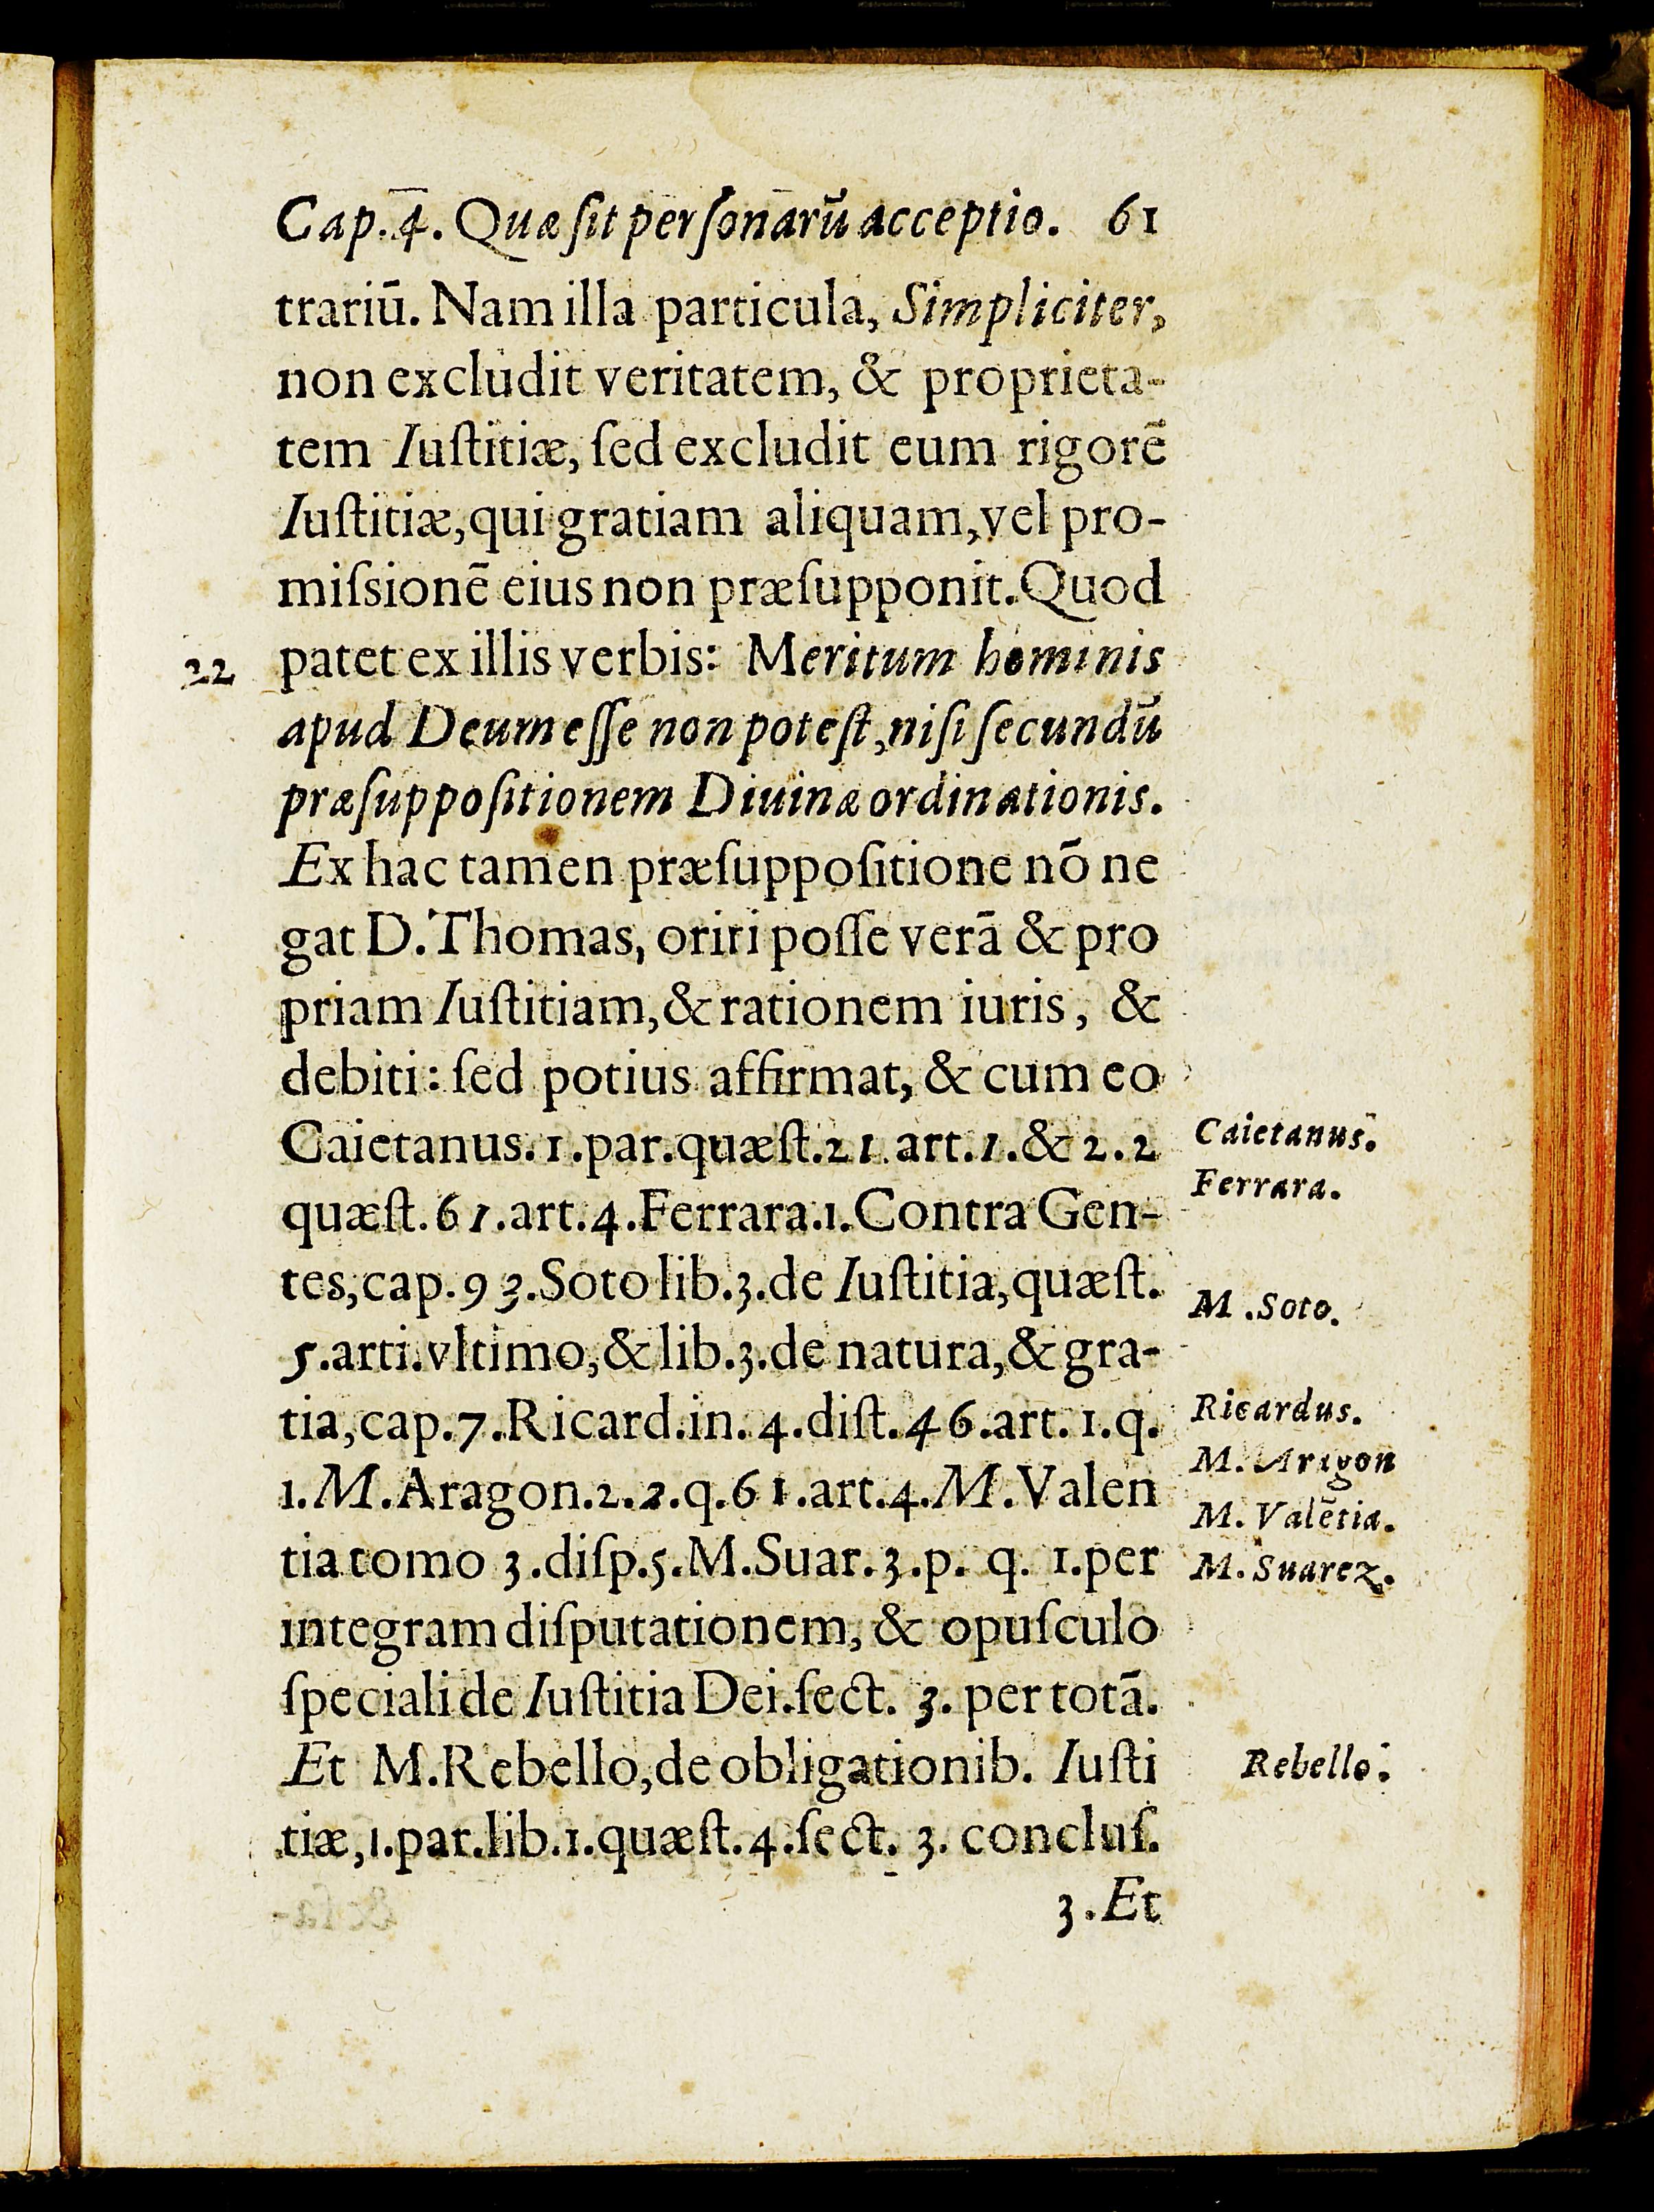 Cap.4. Quæ ſit perſonarū acceptio. 61
trariū. Nam illa particula, Simpliciter,
non excludit veritatem, & proprieta-
tem Iuſtitiæ, ſed excludit eum rigorē
Iuſtitiæ, qui gratiam aliquam, vel pro-
miſsionē eius non præſupponit. Quod
22 patet ex illis verbis: Meritum hominis
apud Deum eſſe non poteſt, niſi ſecundū
præſuppoſitionem Diuinæ ordinationis.
Ex hac tamen præſuppoſitione nō ne
gat D. Thomas, oriri poſſe verā & pro
priam Iuſtitiam, & rationem iuris, &
debiti: ſed potius affirmat, & cum eo
Caietanus. 1. par. quæſt. 21. art. 1. & 2. 2
Caietanus.
quæſt. 61. art. 4. Ferrara. 1. Contra Gen-
Ferrara.
tes, cap. 93. Soto lib. 3. de Iuſtitia, quæſt.
M. Soto.
5. arti. vltimo, & lib. 3. de natura, & gra-
tia, cap. 7. Ricard. in. 4. diſt. 46. art. 1. q.
Ricardus.
1. M. Aragon. 2. 2. q. 61. art. 4. M. Valen
M. Aragon
M. Valētia.
tia tomo 3. diſp. 5. M. Suar. 3. p. q. 1. per
M. Suarez.
integram diſputationem, & opuſculo
ſpeciali de Iuſtitia Dei. ſect. 3. per totā.
Et M. Rebello, de obligationib. Iuſti
Rebello.
tiæ, 1. par. lib. 1. quæſt. 4. ſect. 3. concluſ.
3. Et